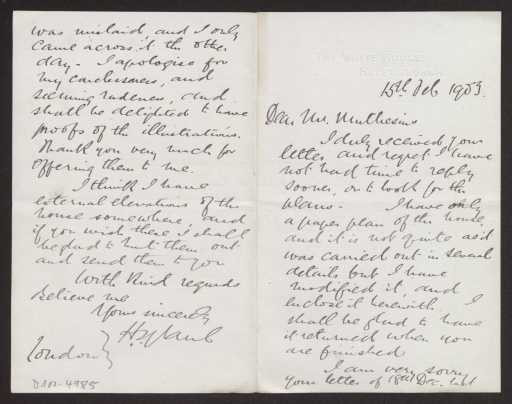 THE WHITE HOUSE,
HELENSBURGH.
15th Feb 1903.
Dear Mr. Muthesius
I duly received your
letter and regret I have
not had time to reply
sooner, or to look for the
plans. I have only
a paper plan of the house,
and it is not quite as it
was carried out in several
details but I have
modified it, and I
enclose it herewith.
shall be glad to have
it returned when you
are finished.
I am very sorry
your letter of 18th Dec. last
was mislaid, and I only
came across it the other
day. I apologise for
my carelessness, and
seeming rudeness, and
shall be delighted to have
proofs of the illustrations.
Thank you very much for
offering them to me.
I think I have
external elevations of the
house somewhere and
if you wish these I shall
be glad to hunt them out
and send them to you
With kind regards
believe me
Yours sincerely
London }
DAM-4985